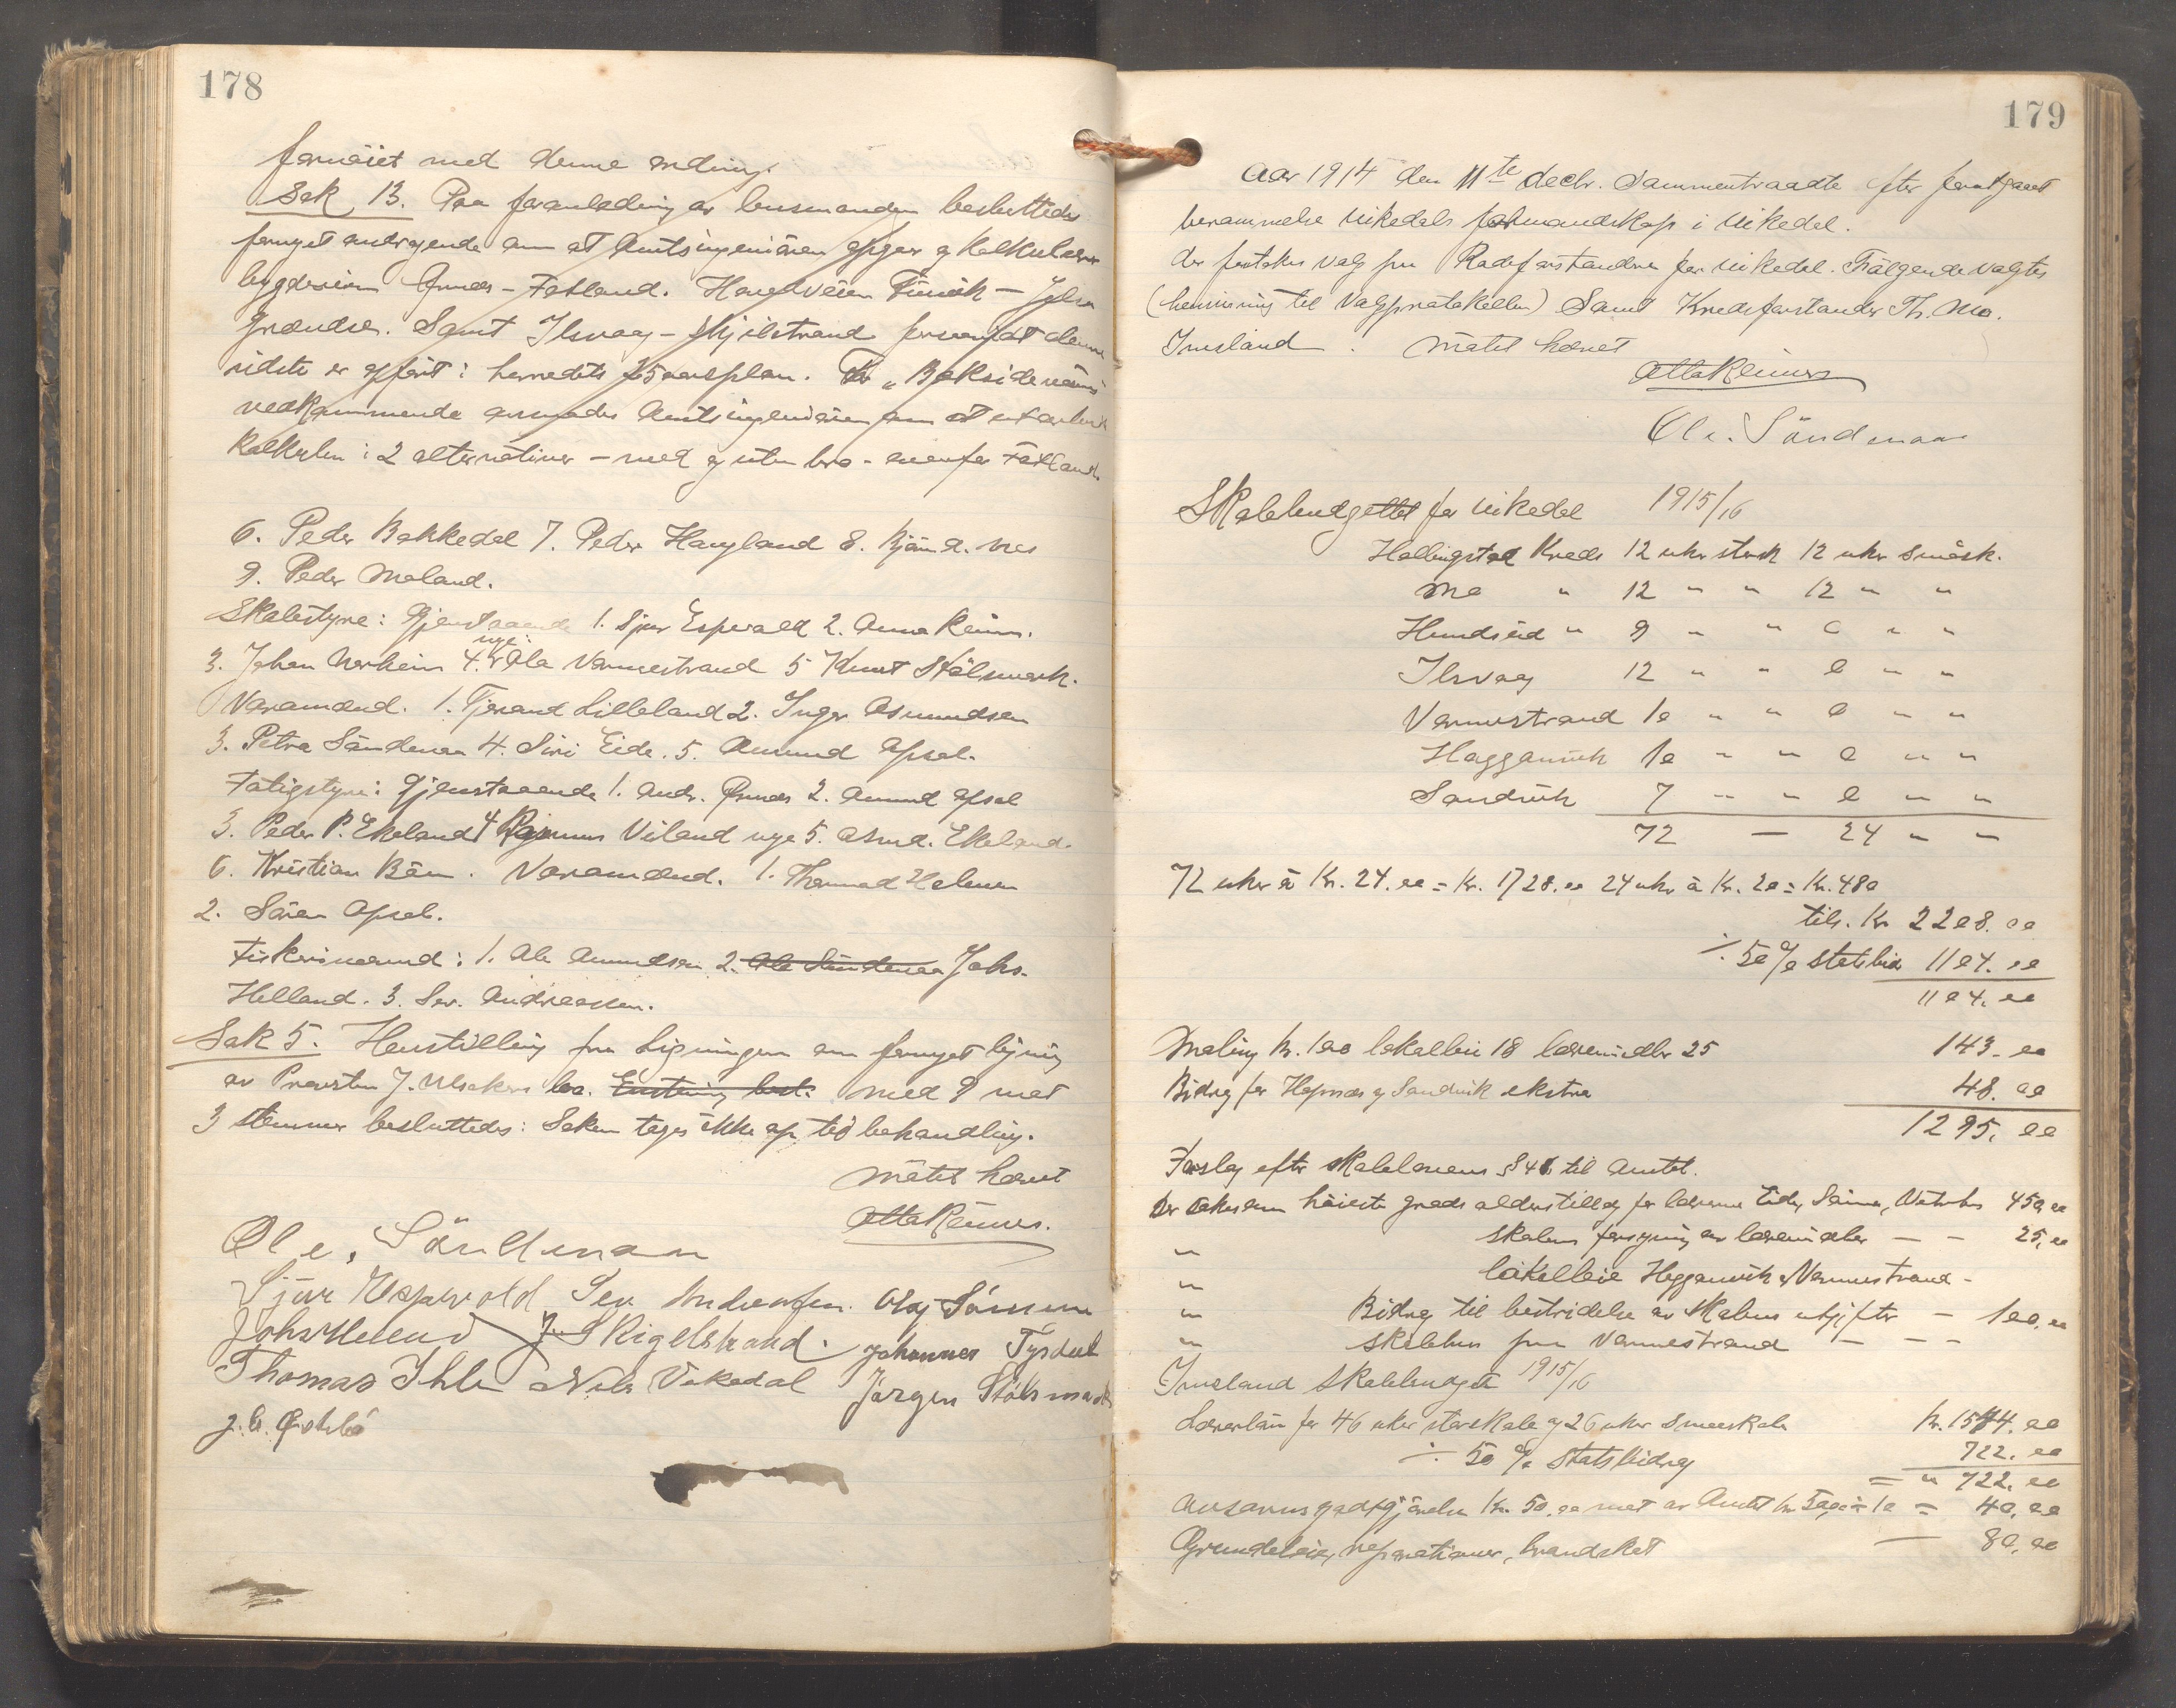 178
fornøiet med denne ordning.
Sak 13. Paa foranledning av lensmanden besluttedes
fornyet andragende om at Amtsingeniøren opgaar og kalkulerer
bygdeveien Ørnes - Fatland. Hovedveien Vinvik - Jelsa
grændse. Samt Ilsvaag - Skjilstrand forsaavidt denne
sidste er opført i herredets 25 aarsplan. For "Baksideveiens"
vedkommende anmodes Amtsingeniøren om at utarbeide
Kalkylen i 2 alternativer - med og uten bro - ovenfor Fatland.
6. Peder Bakkedal 7. Peder Haugland 8. Bjørn A. nes
9. Peder Moland.
Skolestyre: Gjenstaaende 1. Sjur Espevold 2. Anna Reimers.
nye:
3. Johan Norheim 4. Ola Vannestrand 5 Knut Stølsmark.
Varamænd. 1. Tjerand Lilleland 2. Inger Asmundsen
3. Petra Søndenaa 4. Siri Eide. 5. Amund Opsal.
Fatigstyre: Gjenstaaende 1. Andr. Ørnes 2. Amund Opsal
3. Peder P. Ekeland 4 Rasmus Viland nye 5. Asmd. Ekeland.
6. Kristian Bøen. Varamænd. 1. Thormod Helmen
2. Søren Opsal.
Fiskerinævnd: 1. Ole Amundsen 2. Ole Søndenaa Johs.
Helland. 3. Sev. Andreassen.
Sak 5. Henstilling fra Ligningen om fornyet ligning
av Provsten J. Alsaker Med 9 mot
3 stemmer besluttedes: Saken tages ikke op til behandling.
Møtet hævet
Otto Reimers.
Ole. Søndenaa
Sjur Espevold Sev Andreassen. Olaf Sørensen
Johs Helland J. Skigelstrand. Johannes Tysdal
Thomas Ihle Nils Vikedal Jørgen Stølsmark
J. G. Østebø
179
Aar 1914 den 11te decbr. Sammentraadte efter forutgaaet
berammelse Vikedals formandskap i Vikedal.
Der foretokes valg paa Rodeforstandere for Vikedal. Følgende valgtes
(henvisning til Valgprotokollen) Samt Kredsforstander Th. Mo.
Imsland. Møtet hævet
Otto Reimers
Ole. Søndenaa
Skolebudgettet for Vikedal 1915/16
Hallingstad Kreds 12 uker stersk 12 uker småsk.
Mo " 12 " " 12 " "
Hundseid " 9 " " 0 " "
Ilsvaag 12 " " 0 " "
Vannestrand 10 " " 0 " "
Hogganvik 10 " " 0 " "
Sandvik 7 " " 0 " "
72 — 24 " "
72 uker à Kr. 24.00 = Kr. 1728.00 24 uker à Kr. 20 = Kr. 480
tils. Kr 2208.00
÷ 50% statsbid 1104.00
1104.00
Maling Kr. 100 lokalleie 18 læremidler 25 143.00
Bidrag for Hapnes og Sandvik ekstra 48.00
1295.00
Forslag efter skolelovens § 41 til Amtet.
Der søkes om høieste grads alderstillæg for lærerne Eide, 450.00
" skolens forsyning av læremidler — — 25.00
" lokalleie Hogganvik & Vannestrand -
" Bidrag til bestridelse av skolens utgifter — 100.00
" skolehus paa Vannestrand — — —
Imsland skolebudget 1915/16
Lærerløn for 46 uker storskole og 26 uker smaaskole Kr. 1544.00
÷ 50 % Statsbidrag 722.00
= " 722.00
Kr. 50.00 mot av Amtet = 40.00
Grundeleie, reparationer, brandskat — 80.00